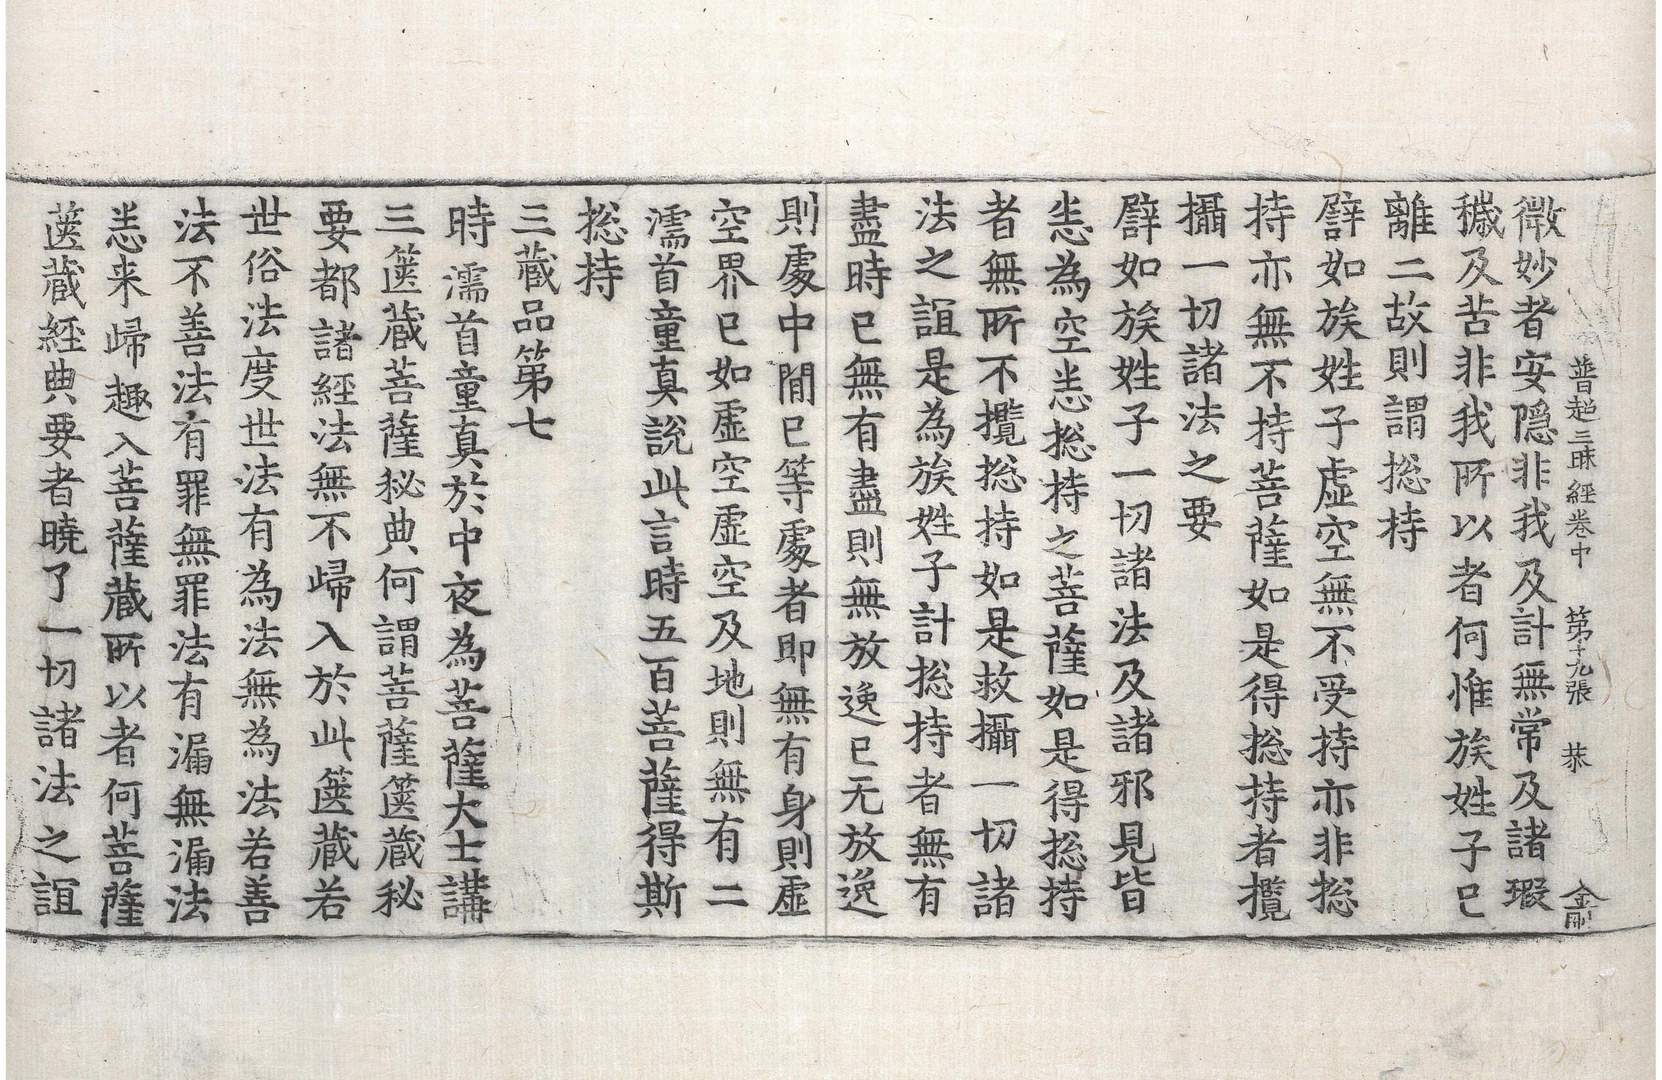 普超三昧經卷中　第十九張　恭
微妙者安隱非我及計無常及諸瑕
穢及苦非我所以者何惟族姓子已
離二故則謂揔持
譬如族姓子虛空無不受持亦非揔
持亦無不持菩薩如是得揔持者攬
攝一切諸法之要
譬如族姓子一切諸法及諸邪見皆
恙為空恙恙揔持之菩薩如是得揔持
者無所不攬揔持如是救攝一切諸
法之誼是為族姓子計揔持者無有
盡時已無有盡則無放逸已无放逸
則處中間已等處者即無有身則虛
空界已如虛空虛空及地則無有二
濡首童真說此言時五百菩薩得斯
揔持
三藏品第七
時濡首童真於中夜為菩薩大士講
三篋藏菩薩秘典何謂菩薩篋藏秘
要都諸經法無不歸入於此篋藏若
世俗法度世法有為法無為法若善
法不善法有罪無罪法有漏無漏法
恙来歸趣入菩薩藏所以者何菩薩
篋藏經典要者曉了一切諸法之誼